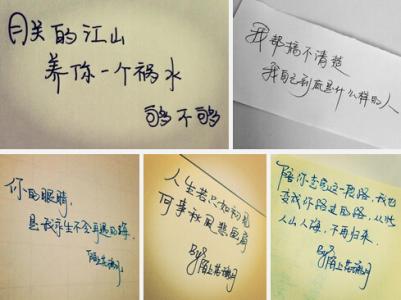 朕的江山
养你一个祸水
够不够
我都搞不清楚
我自己到底是什么样的人
你的眼睛,
是我余生不会再遇的海.
人生若只如初见
何事秋风悲画扇
By:陌上花
陪你走完这一段路,我也
变成你路过的路,从此
人山人海,不再归来.
By:陌上花